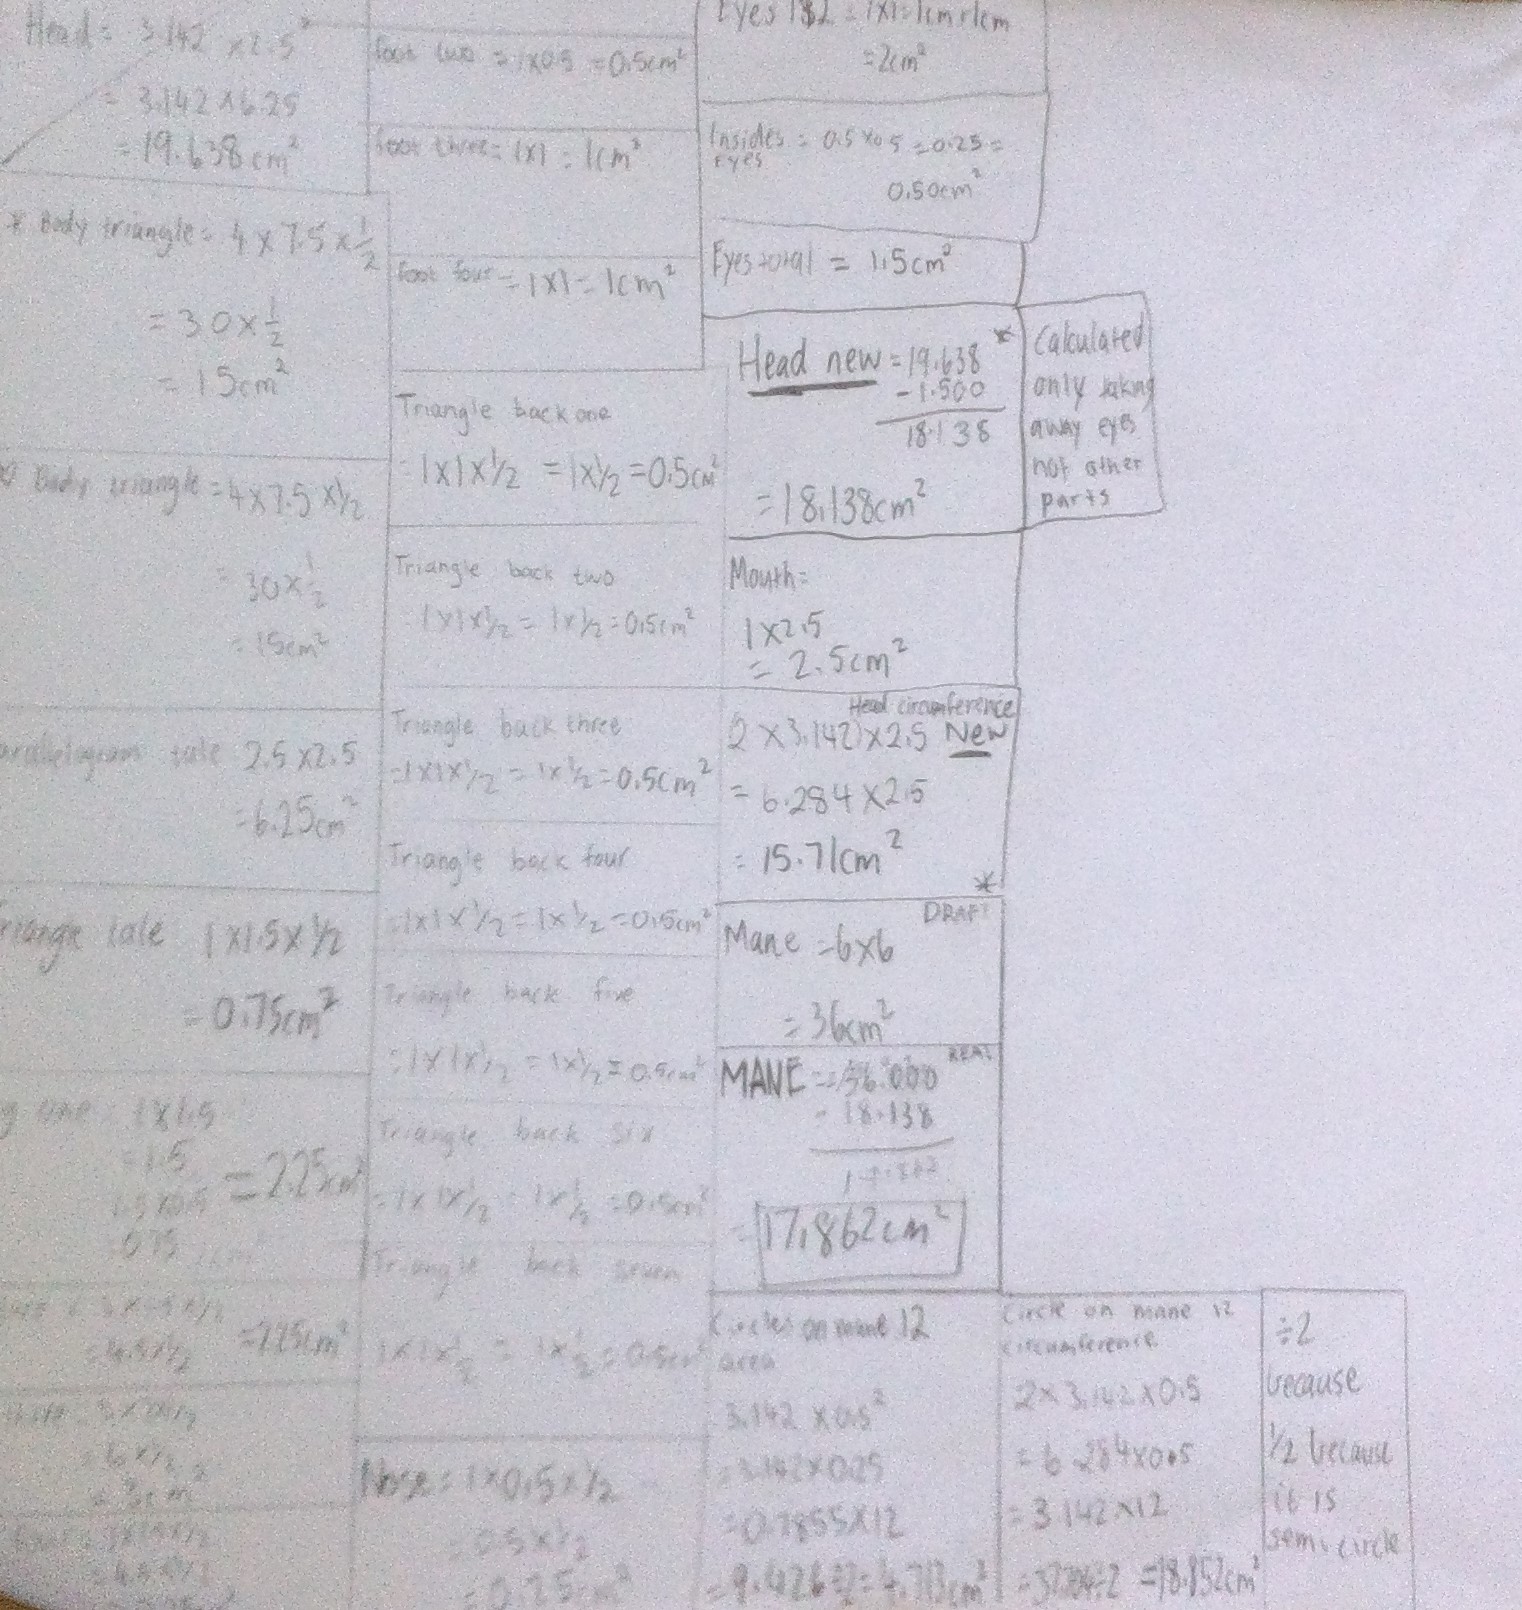 Head = 3.142 × 2.5²
= 3.142 × 6.25
= 19.638cm²
* Body triangle = 4 × 7.5 × 1/2
= 30 × 1/2
= 15cm²
Body triangle = 4 × 7.5 × 1/2
= 30 × 1/2
= 15cm²
tale 2.5 × 2.5
= 6.25cm²
tale 1 × 1.5 × 1/2
= 0.75cm²
one = 1 × 1.5
= 1.5 = 2.25cm²
0.75
= 2.25cm²
foot two = 1×0.5 = 0.5cm²
foot three = 1×1 = 1cm²
foot four = 1×1 = 1cm²
Triangle back one
= 1×1×1/2 = 1×1/2 = 0.5cm²
Triangle back two
= 1×1×1/2 = 1×1/2 = 0.5cm²
Triangle back three
= 1×1×1/2 = 1×1/2 = 0.5cm²
Triangle back four
= 1×1×1/2 = 1×1/2 = 0.5cm²
Triangle back five
= 1×1×1/2 = 1×1/2 = 0.5cm²
Triangle back six
= 1×1×1/2 = 1×1/2 = 0.5cm²
Triangle back seven
1×1×1/2 = 1×1/2 = 0.5cm²
Nose = 1×0.5×1/2
= 0.5×1/2
= 0.25cm²
Eyes 1&2 = 1×1 = 1cm+1cm
= 2cm²
Insides = 0.5×0.5 = 0.25 =
eyes
0.50cm²
Eyes total = 1.5cm²
Head new = 19.638 *
- 1.500
18.138
= 18.138cm²
Calculated
only taking
away eyes
not other
parts
Mouth =
1×2.5
= 2.5cm²
Head circumference
2 × 3.142 × 2.5 New
= 6.284 × 2.5
= 15.71cm²
*
DRAFT
Mane = 6×6
= 36cm²
REAL
MANE = 36.000
- 18.138
17.862
= 17.862cm²
Circles on mane 12
area
3.142 × 0.5²
= 3.142×0.25
= 0.7855×12
= 9.426÷2 = 4.713cm²
Circle on mane 12
circumference
2×3.142×0.5
= 6.284×0.5
= 3.142×12
= 37.704÷2 = 18.852cm²
÷2
because
1/2 because
it is
semicircle